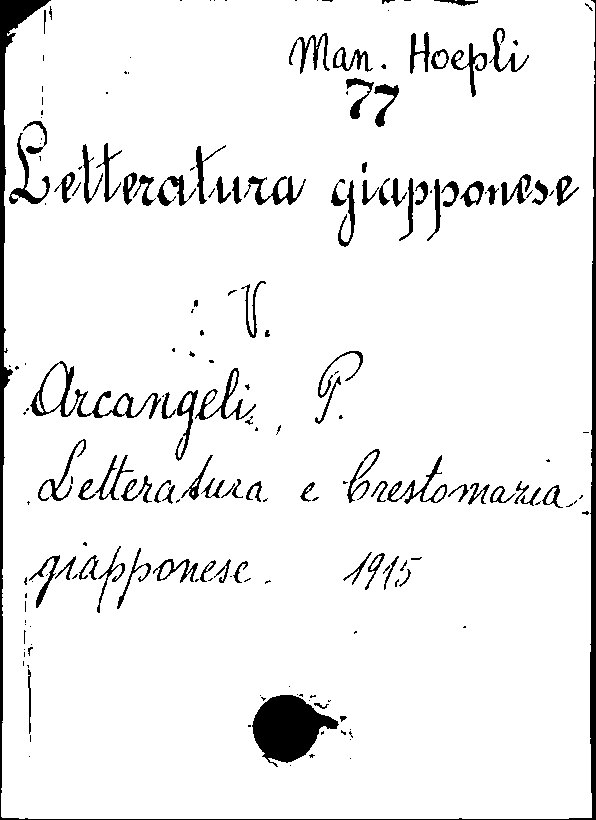 Man. Hoepli
77
Letteratura giapponese
V.
Arcangeli, P.
Letteratura e Crestomazia
giapponese. 1915